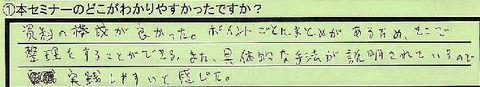 ①本セミナーのどこがわかりやすかったですか？
資料の構成が良かった。ポイントごとにまとめがあるため、そこで
整理をすることができる。また、具体的な手法が説明されているので
実践しやすいと感じた。